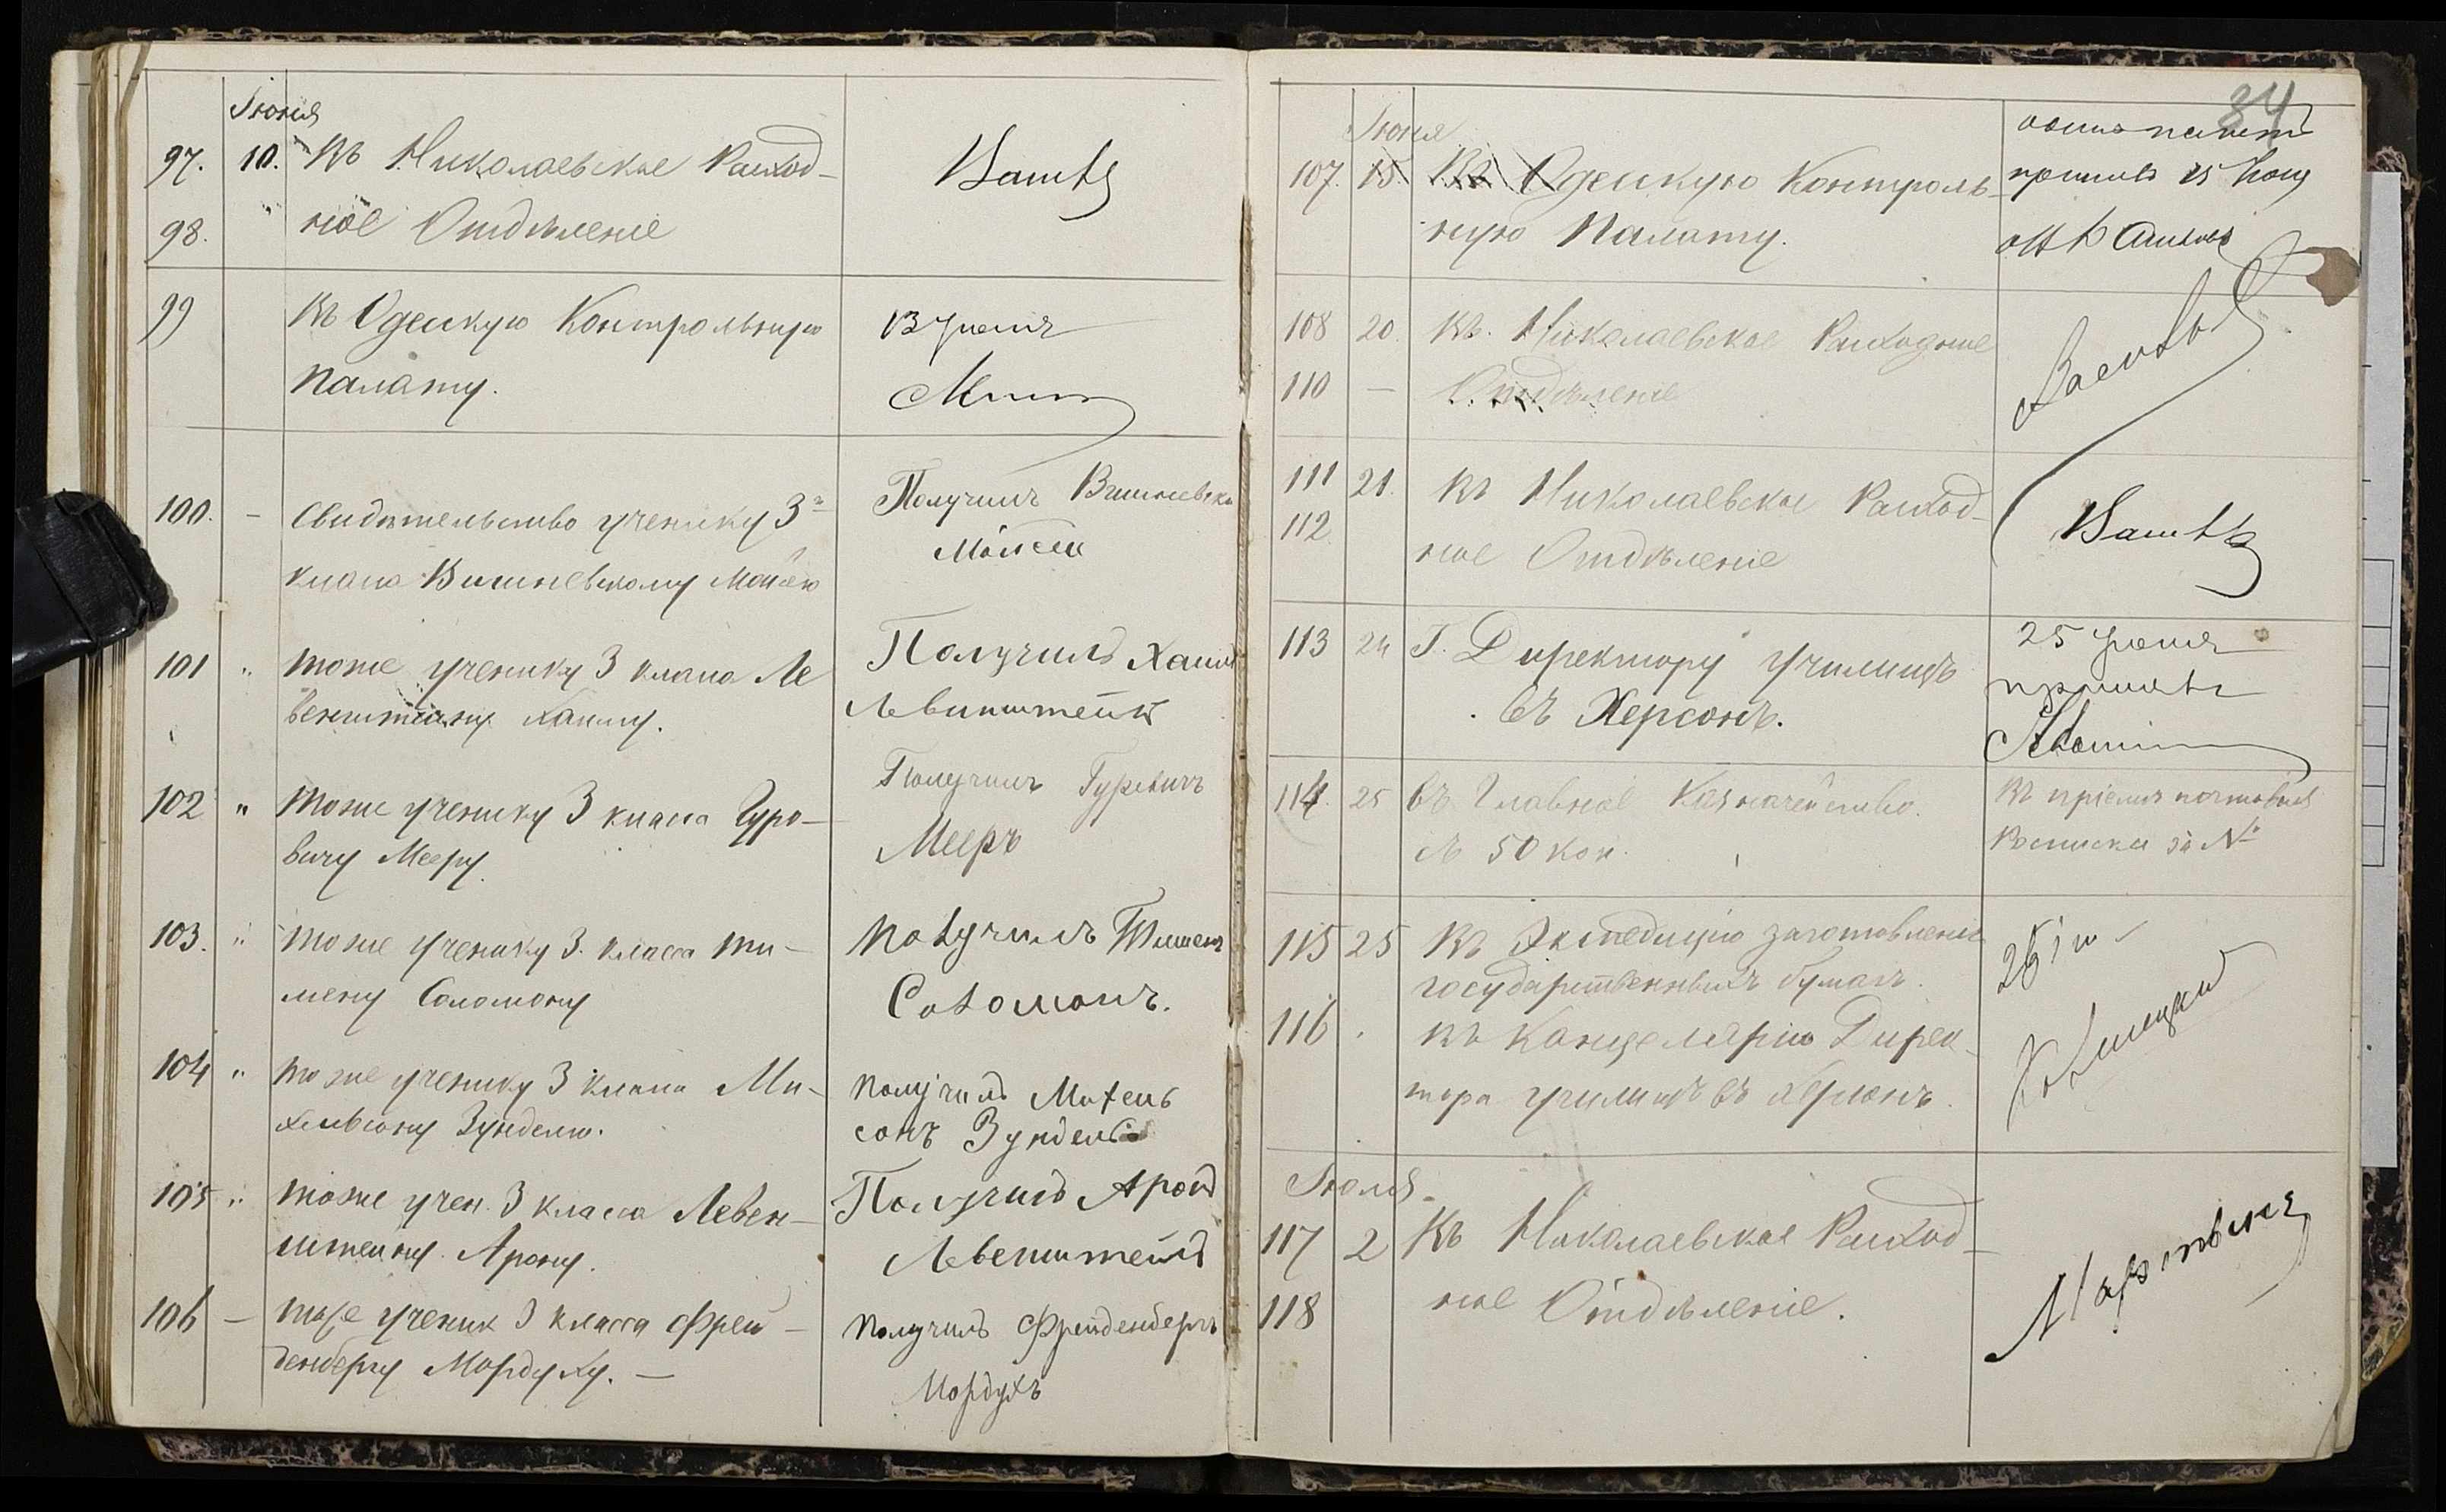 Іюня
97. 10. Въ Николаевское Расход-
98. " ное Отдѣленіе
99 Въ Одескую Контрольную
Палату.
13 Іюня
100. — Свидѣтельство ученику 3го
класа Вишневскому Мойсею
Получилъ Вишневски
Мойсей
101 " тоже ученику 3 класа Ле
венштейну Хаиму.
Получилъ Хаимъ
Левинштейнъ
102 " тоже ученику 3 класса Гуро-
вичу Мееру.
Получилъ Гуревичъ
Мееръ
103. " тоже ученику 3. класса Ти-
мену Соломону
Получилъ Тименъ
Соломонъ.
104 " тоже ученику 3 класа Ми-
хельсону Зунделю.
Получилъ Михель
сонъ Зундель
105 " тоже учен. 3 класса Левен-
штейну Арону.
Получилъ Аронъ
Левенштейнъ
106 — тоже ученик 3 класса Фрей-
денбергу Мордуху. —
Получилъ Фрейденбергъ
Мордухъ
34
Іюня
107. 15. Въ Одескую Контроль-
ную Палату.
пакетъ
108 20. Въ. Николаевское Расходное
110 — Отдѣленіе
111 21. Въ Николаевское Расход-
112 ное Отдѣленіе
113 24 Г. Директору училищъ
въ Херсонъ.
25 Іюня
114. 25 Въ Главное Казначейство.
съ 50 коп.
Въ пріемѣ почтовая
Росписка за №
115 25 Въ Экспедицію заготовленія
государственныхъ бумагъ.
116 . Въ Канцелярію Дирек-
тора училищъ въ Херсонъ.
26
Іюля
117 2 Въ Николаевское Расход-
118 ное Отдѣленіе.